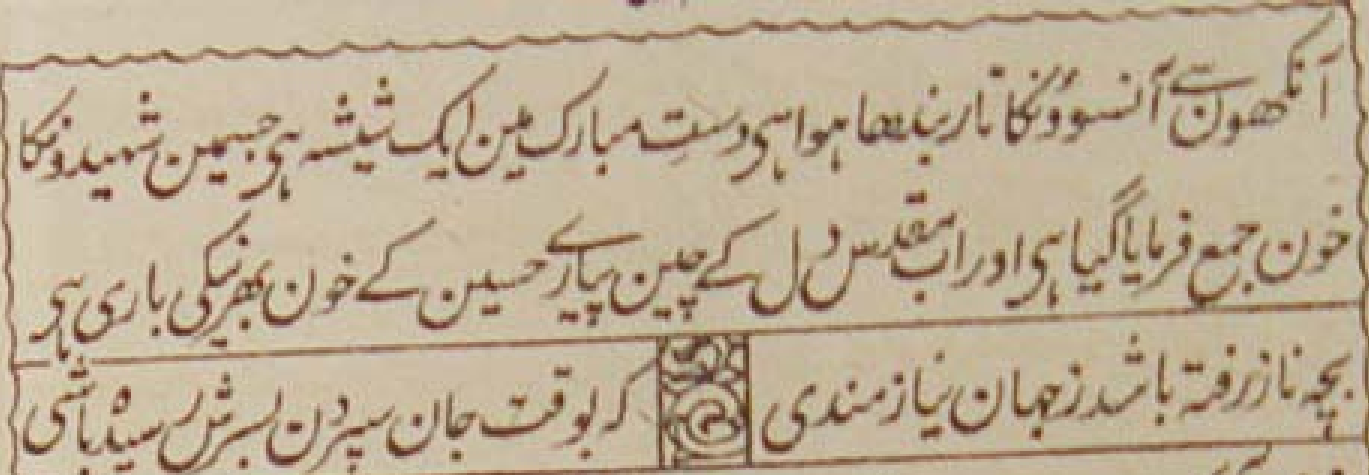 آنکھون سے آنسوؤنکا تار بندھا ہوا ہی دستِ مبارک مین ایک شیشہ ہی جسمین شہیدونکا
خون جمع فرمایا گیا ہی اور اب مقدس دل کے چین پیارے حسین کے خون بھرنیکی باری ہی
بچہ ناز رفتہ باشد ز جہان نیازمندی
کہ بوقت جان سپردن بسرش رسیدہ باشی